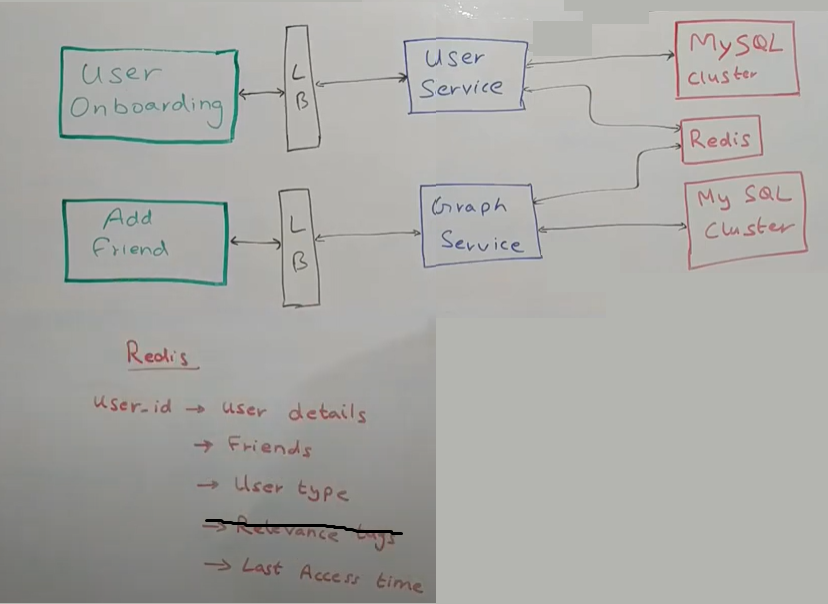 User
Onboarding
L
B
User
Service
MySQL
Cluster
Redis
Add
Friend
L
B
Graph
Service
My SQL
Cluster
Redis
User_id → user details
→ Friends
→ User type
→ Relevance tags
→ Last Access time